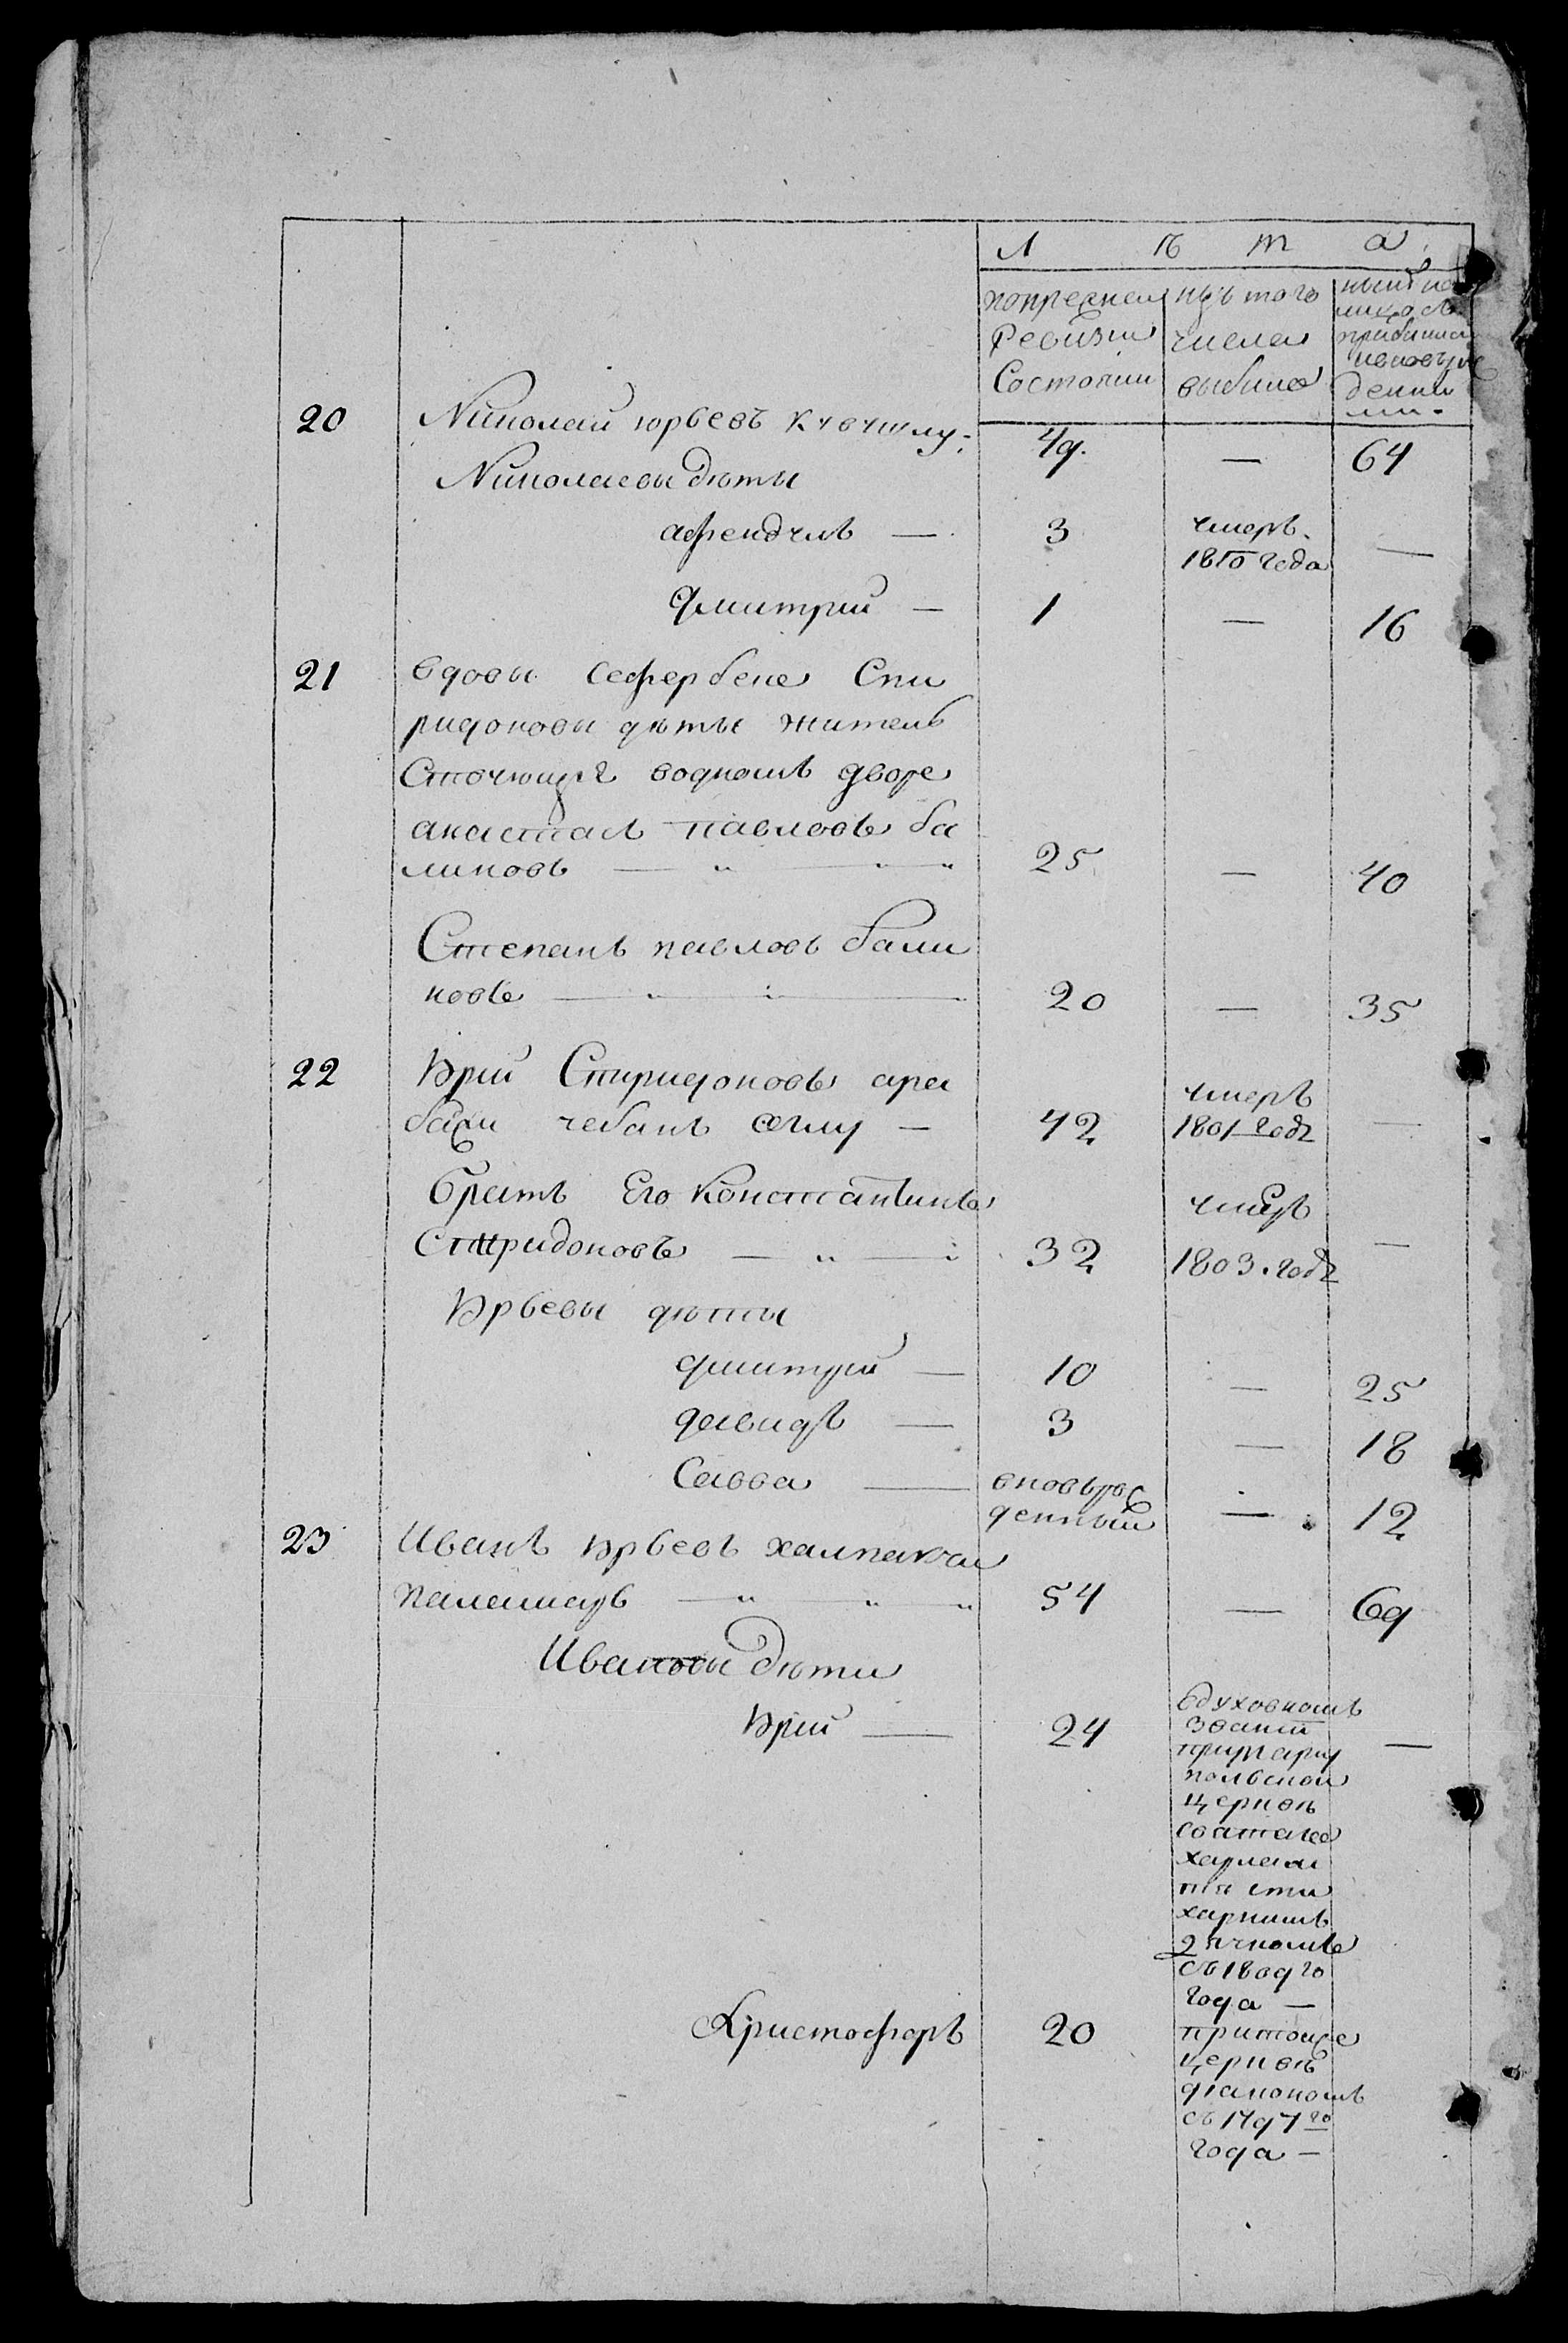 Л ѣ т а
попрежнеи изъ того ныне на
ревизіи числа лицо съ
Состояли выбыло прибылы
иновърж
денны
ми.
20 Николай юрьевъ Кучуклу: 49. — 64
Николаевы дѣты
афендулъ — 3 умеръ. —
1810 года
Дмитрий — 1 — 16
21 вдовы Сефербеие Спи
ридоновы дѣты житель
Ствующія водномъ дворе
анастасъ павловъ ба
линовъ — „ — „ — „ 25 — 40
Степанъ павловъ бали
новъ — „ — „ — 20 — 35
22 Юрий Спиридоновъ ара
бажи чебанъ оглу — 42 умеръ —
1801 годȣ
братъ Его Константинъ умеръ
Спиридоновъ — „ — „ 32 1803. годȣ —
Юрьевы дѣты
дмитрий — 10 — 25
давидъ — 3 — 18
Савва — вновърож
денный — 12
23 Иванъ Юрьевъ халпакчи
паламаръ — „ „ „ 54 — 69
Ивановы дѣти
Юрий — 24 вдуховномъ
званіи —
примариу
польской
церквѣ
святаго
харлам
пія сти
харнимъ
дячкомъ
съ 1809 го
года —
Христофоръ 20 притойже
церквѣ
діакономъ
съ 1797 го
года —